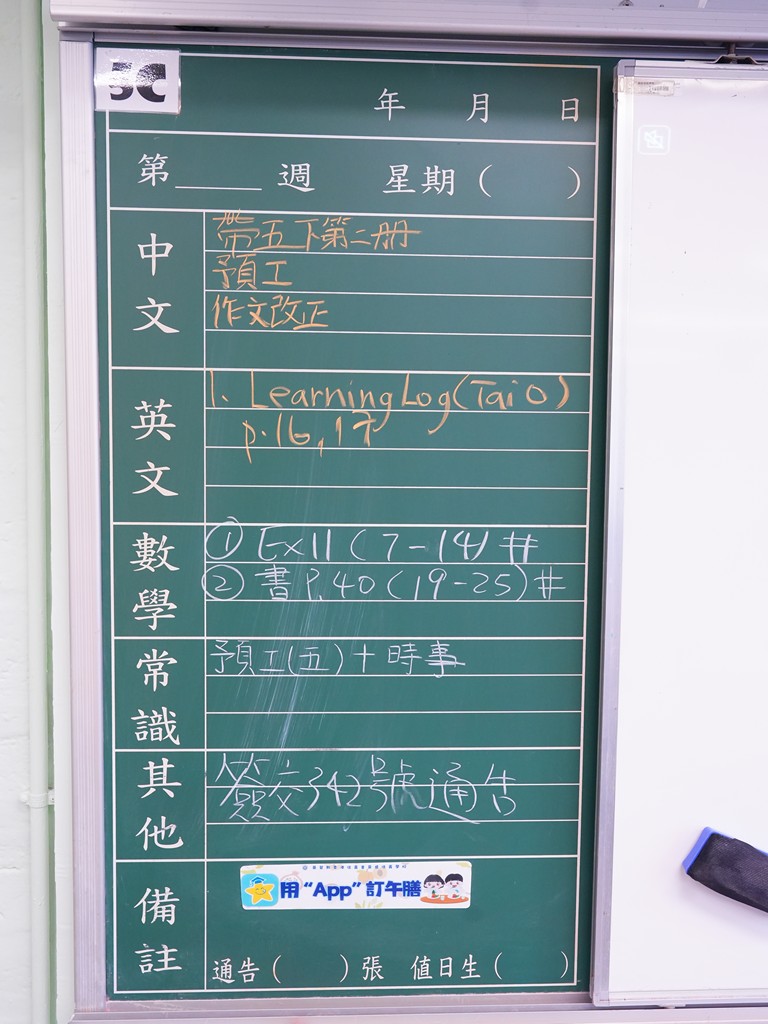 5C
年 月 日
第 週 星期( )
中文
帶五下第二冊
預工
作文改正
英文
1. Learning Log (Tai O)
p.16, 17
數學
① Ex11 (7-14) #
② 書 P.40 (19-25) #
常識
預工(五)+時事
其他
簽交342號通告
備註
用“App”訂午膳
通告( )張 值日生( )